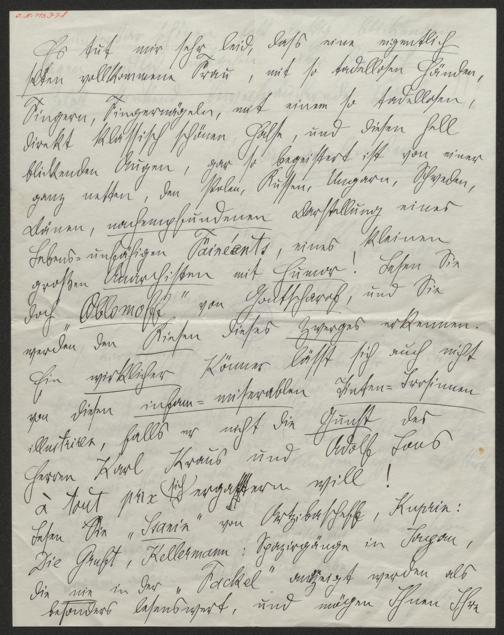 Es tut mir sehr leid, dass eine eigentlich
selten vollkommene Frau, mit so tadellosen Händen,
Fingern, Fingernägeln, mit einem so tadellosen,
direkt klassisch schönen Halse, und diesen hell
blickenden Augen, gar so begeistert ist von einer
ganz netten, den Polen, Russen, Ungarn, Schweden,
Dänen, nachempfundenen Darstellung eines
Lebens-unfähigen Fainéants, eines kleinen
großen Anarchisten mit Humor! Lesen Sie
doch "Oblomoff" von Gontscharof, und Sie
werden den Riesen dieses Zwerges erkennen.
Ein wirklicher Könner lässt sich auch nicht
von diesen infam-miserablen Tinten-
illustrire, falls er nicht die Gunst des
Herren Karl Kraus und Adolf Loos
à tout prix sich ergattern will!
Lesen Sie "Sanin" von Artzibascheff, Kuprin:
Die Gruft, Kellermann: Spaziergänge in Japan,
die nie in der "Fackel" angezeigt werden als
besonders lesenswert, und mögen Ihnen Ihre